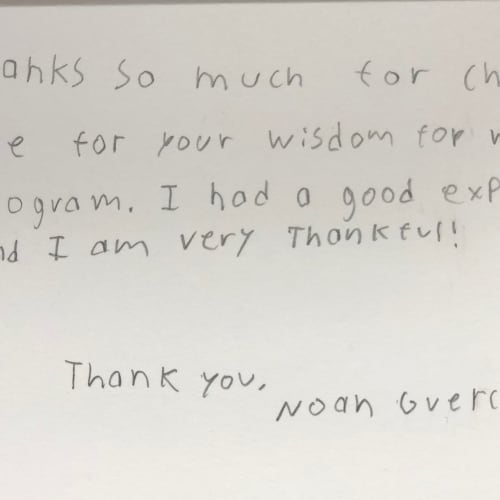 anks so much for ch
e for your wisdom for
ogram. I had a good exp
nd I am very Thankful!
Thank you,
Noah Guerc